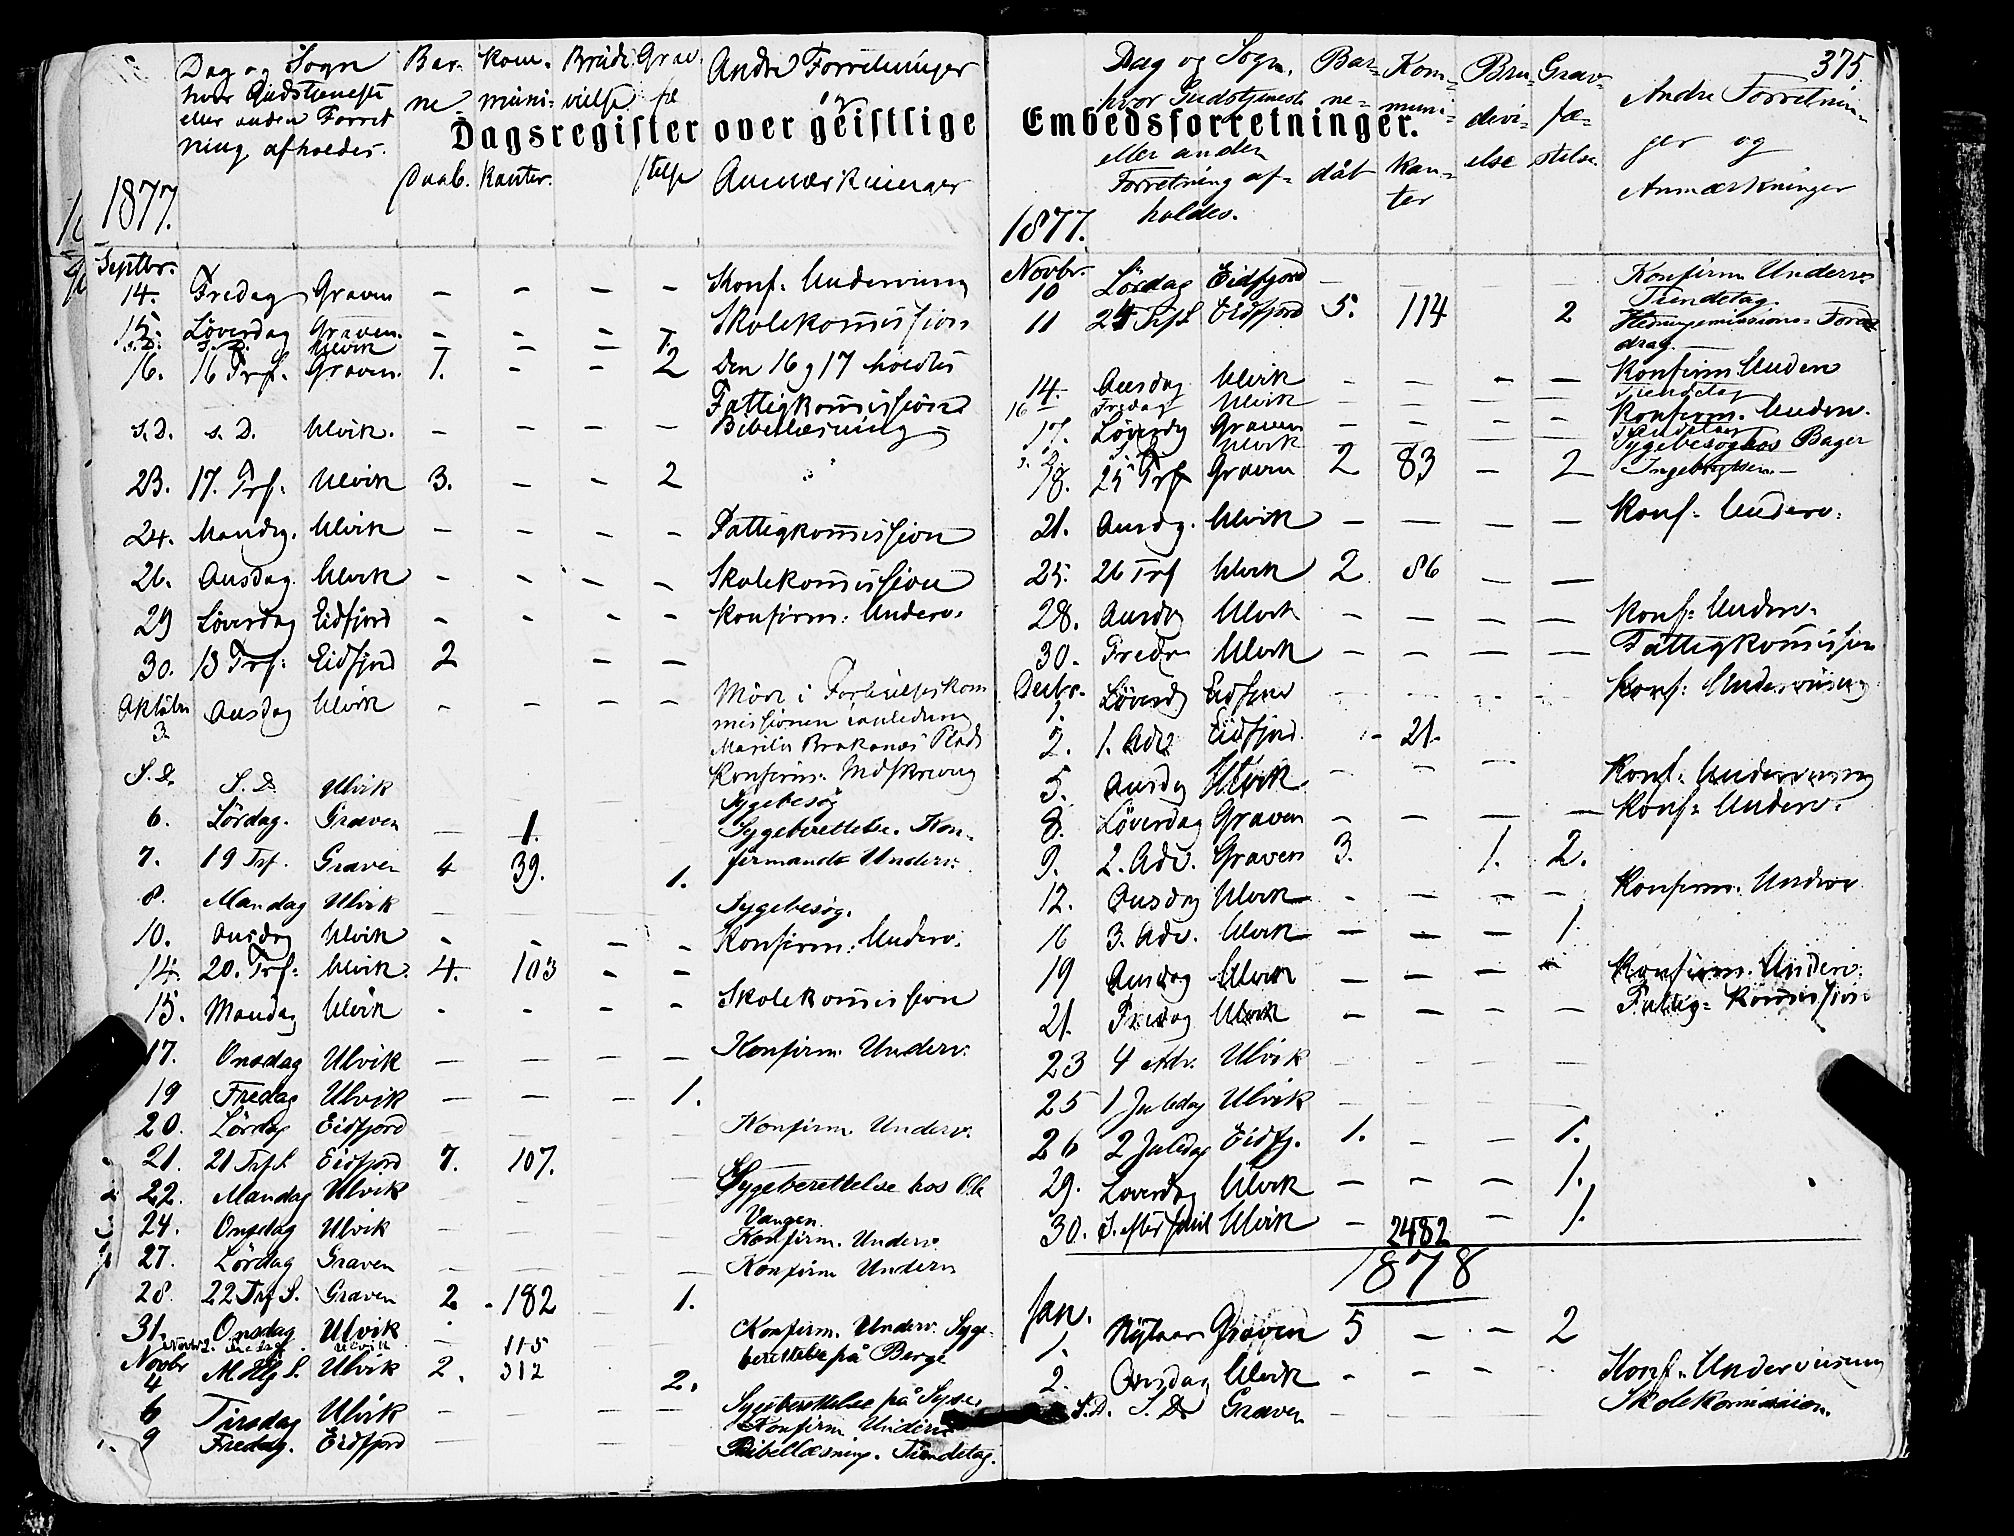 Dagsregister over geistlige
Dag og Sogn
hvor Gudstjeneste
eller anden Forret
ning afholdes.
Bar-
ne-
Daab.
Kom-
muni-
kanter.
Brude
vielse
Grav
fæ
stelse
Andre Forretninger
og
Anmærkninger
1877.
Septbr.
14. Fredag Graven - - - - Konf. Underviisning
15. Löverdag Graven. - - - Skolekommission
s. D. s. D. Ulvik - - - 1.
16. 16 Trf. Graven. 1. - - 2 Den 16 og 17 holdtes
Fattigkommission
s. D. s. D. Ulvik. - - - - Bibellæsning
23. 17. Trf. Ulvik 3. - - 2
24. Mandag. Ulvik - - - - Fattigkommission
26. Onsdag Ulvik - - - - Skolekommission
29 Löverdag Eidfjord - - - - Konfirm. Underv.
30. 18 Trf. Eidfjord 2 - -
Oktober
3. Onsdag Ulvik - - - - Möde i Forligelseskom
missionen i anledning
Brakanæs Plads
S. D. S. D. Ulvik Konfirm. Indskrivning
Sygebesög
6. Lördag. Graven — 1. Sygeberettelse. Kon-
7. 19 Trf. Graven 4 39. 1. firmande Underv.
8. Mandag Ulvik — Sygebesøg.
10. Onsdag Ulvik - - - - Konfirm. Underv.
14. 20. Trf. Ulvik. 4. 103 - -
15. Mandag Ulvik - - - - Skolekommission
17. Onsdag Ulvik — — — — Konfirm. Underv.
19 Fredag Ulvik — — — 1.
20. Lördag Eidfjord Konfirm. Underv.
21. 21 Trf. S. Eidfjord 7. 107.
22. Mandag Ulvik Sygeberettelse hos
Vangen
24. Onsdag Ulvik Konfirm. Underv.
27. Lördag Graven Konfirm Underv
28. 22 Trf S. Graven 2. 182 1.
31. Onsdag Ulvik Konfirm. Underv. Syge-
Novbr 2. Ulvik 115 berettelse på Berge
Novbr
4 M Hlg S. Ulvik 2. 312 2.
6 Tirsdag Ulvik Sygeberettelse på Syse
Konfirm Underv
9 Fredag. Eidfjord Bibellæsning. Tiendetag.
375.
Embedsforretninger.
Dag og Sogn.
hvor Gudstjeneste
eller anden
Forretning af-
holdes.
Bar-
ne-
dåb
Kom-
muni-
kan-
ter
Bru-
devi-
else
Grav-
fæ-
stelse.
Andre Forretnin-
ger og
Anmærkninger
1877.
Novbr.
10 Lördag Eidfjord - - - - Konfirm Underv
Tiendetag.
11 24 Trf S Eidfjord 5. 114 2 Hedningemissions Fore
drag.
14. Onsdag Ulvik - - - - Konfirm Underv
16 Fredag Ulvik - - - - Tiendetag
17. Löverdg Graven - - - - Konfirm. Underv.
s. D. Ulvik - - - - Sygebesög hos Bager
18. 25 Trf Graven 2 83 - 2 Ingebrigtsen.
21. Onsdg. Ulvik - - - - Konf. Underv.
25. 26 Trf Ulvik 2 86 - -
28. Onsdg Ulvik - - - - Konf. Underv.
30. Fredag Ulvik - - - - Fattigkommission
Decbr.
1. Löverdg Eidfjord - - - - Konf. Underviisning
2. 1. Adv. Eidfjord. - 21.
5. Onsdag Ulvik - - - Konf. Underviisning
8. Löverdag Graven - - - - Konf. Underv.
9. 2. Adv. Graven 3. 1. 2.
12. Onsdag Ulvik - - - - Konfirm. Underv
16 3. Adv. Ulvik - - - 1.
19 Onsdag Ulvik - - - - Konfirm. Underv.
21. Fredag Ulvik - - - - Fattig-Kommission
23 4 Adv. Ulvik - - - -
25 1 Juledag Ulvik - - - -
26 2 Juledag Eidfj. 1. - - 1.
29. Löverdag Ulvik - - - 1.
30. S. efter Juul Ulvik - 2482 - 1.
1878
Jan.
1. Nytaar Graven 5 - - 2
2. Onsdag Ulvik - - - - Konf. Underviisning
S. D. S. D. Graven - - - - Skolekommission.